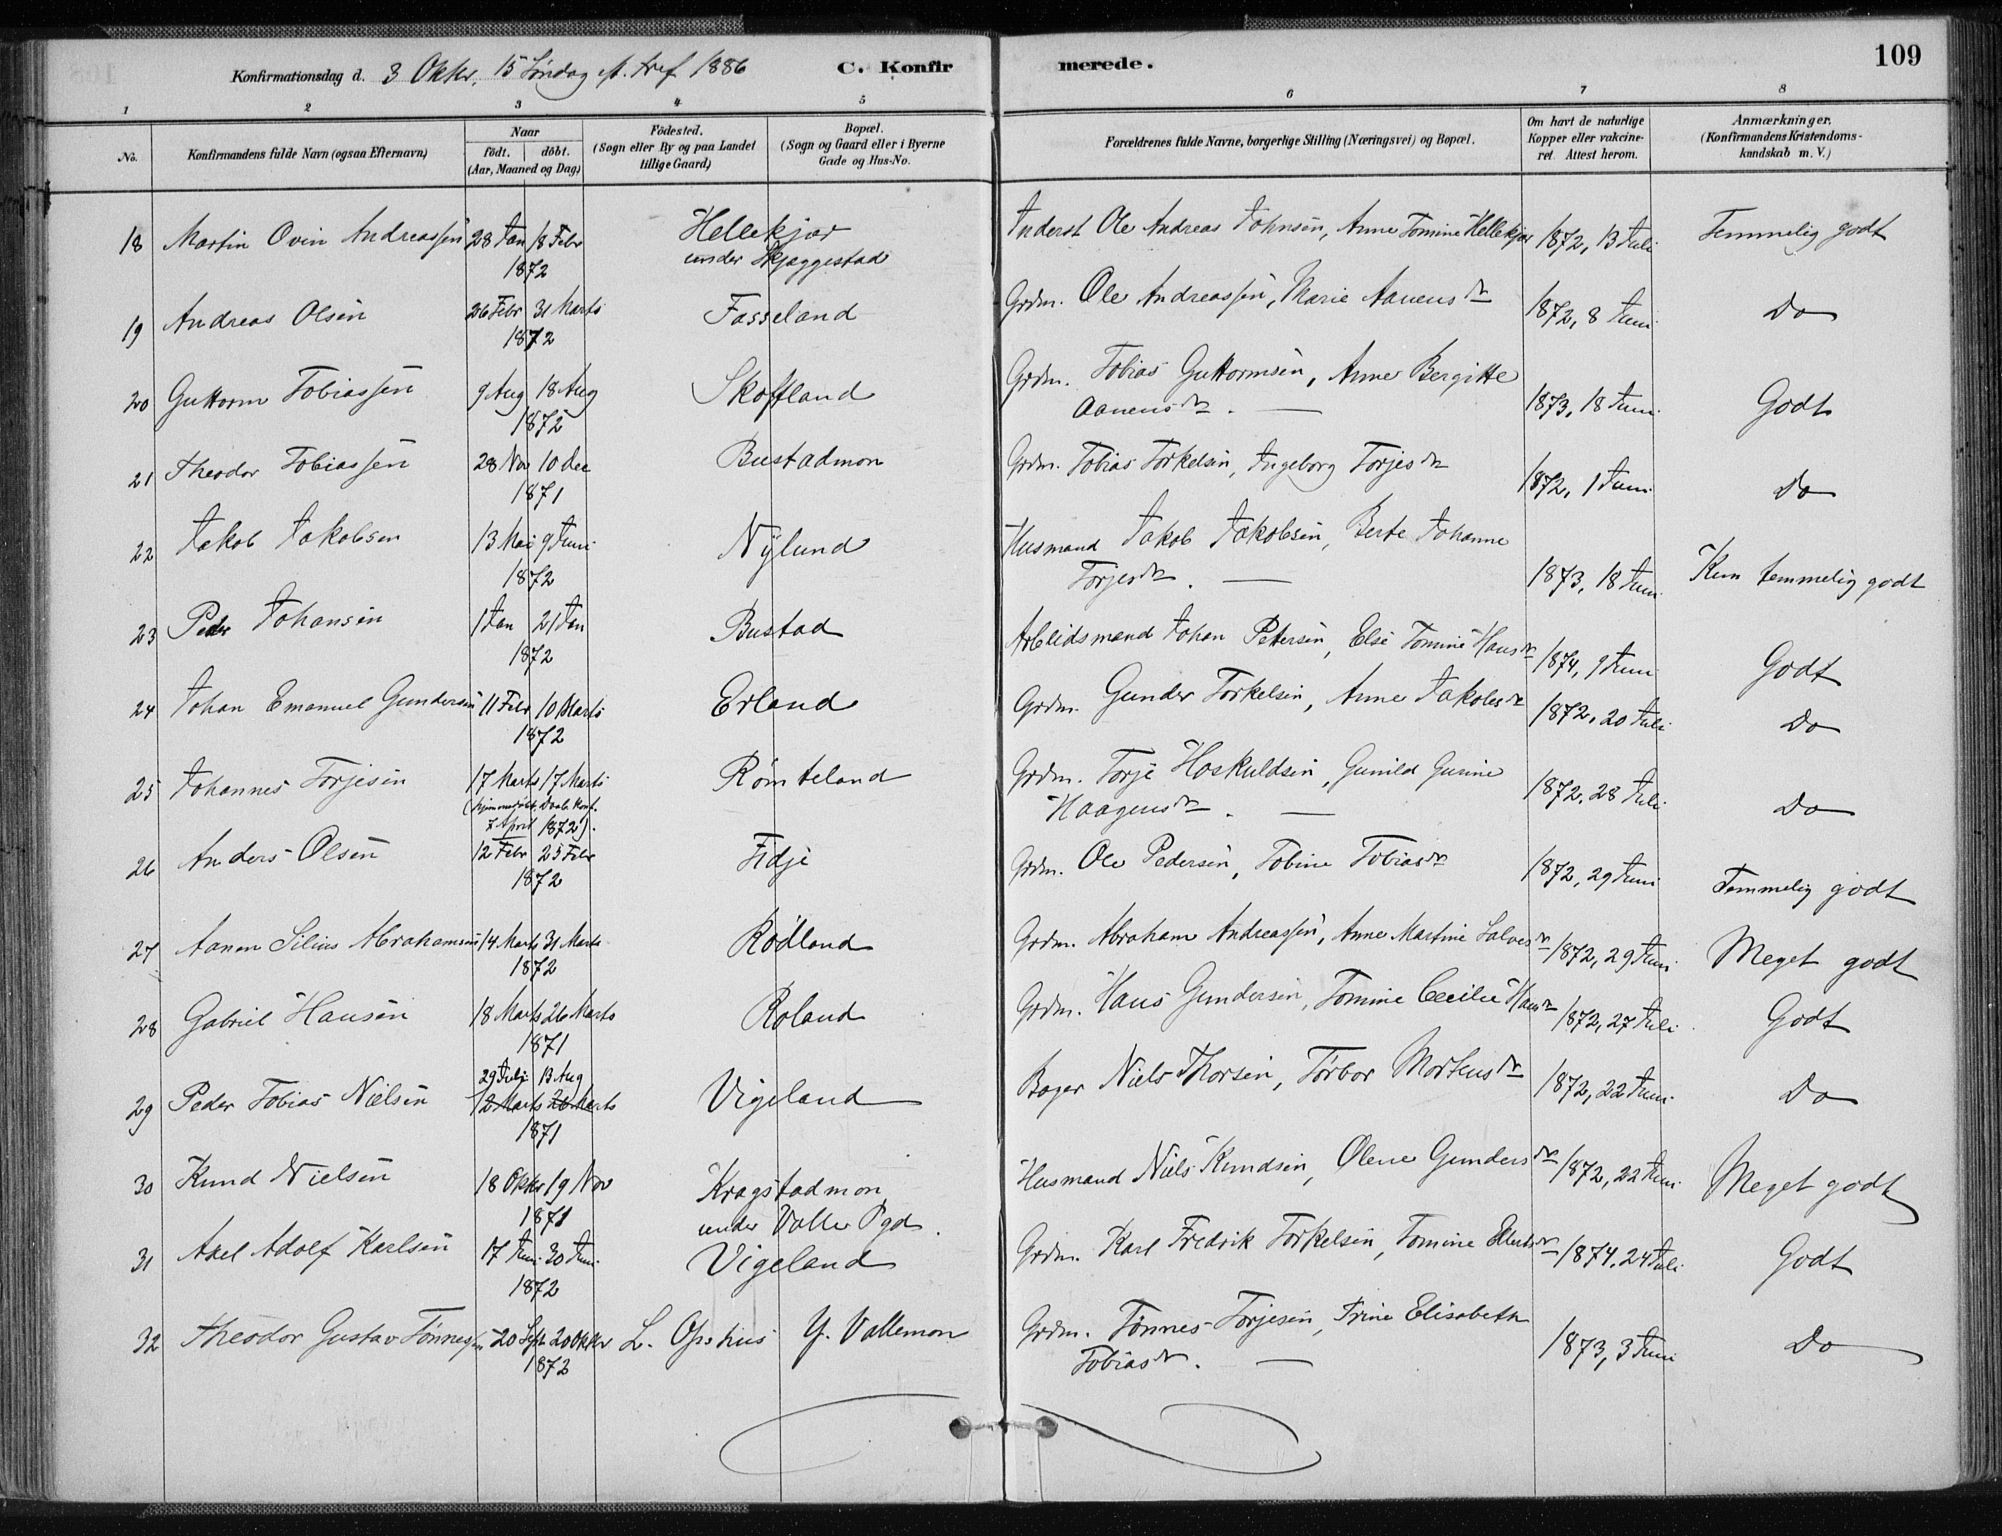 109
Konfirmationsdag d. 3 Oktbr. 15 Søndag eft. Tref 1886 C. Konfirmerede.
1 2 3 4 5 6 7 8
No. Konfirmandens fulde Navn (ogsaa Efternavn) Naar født. døbt. (Aar, Maaned og Dag) Fødested. (Sogn eller By og paa Landet tillige Gaard) Bopæl. (Sogn og Gaard eller i Byerne Gade og Hus-No. Forældrenes fulde Navne, borgerlige Stilling (Næringsvei) og Bopæl. Om havt de naturlige Kopper eller vakcineret. Attest herom. Anmærkninger. (Konfirmandens Kristendomskundskab m. V.)
18 Martin Ovin Andreassen 28 Jan 18 Febr Hellekjær Inderst Ole Andreas Johnsen, Anne Tomine Hellekjær 1872, 13 Juli Temmelig godt
1872 under Skjæggestad
19 Andreas Olsen 26 Febr 31 Marts Fasseland Grdm. Ole Andreassen, Marie Aanensdr 1872, 8 Juni Do
1872
20 Guttorm Tobiassen 9 Aug 18 Aug Skofland Grdm. Tobias Guttormsen, Anne Bergitte 1873, 18 Juni Godt
1872 Aanensdr. —
21 Theodor Tobiassen 28 Nov 10 Dec Bustadmon Grdm. Tobias Torkelsen, Ingeborg Torjesdr 1872, 1 Juni Do
1871
22 Jakob Jakobsen 13 Mai 9 Juni Nylund Husmand Jakob Jakobsen, Berte Johanne 1873, 18 Juni Kun temmelig godt
1872 Torjesdr. —
23 Peder Johansen 1 Jan 21 Jan Bustad Arbeidsmand Johan Petersen, Else Tomine Hansdr 1874, 9 Juni Godt
1872
24 Johan Emanuel Gundersen 11 Febr 10 Marts Erland Grdm. Gunder Torkelsen, Anne Jakobsdr 1872, 20 Juli Do
1872
25 Johannes Torjesen 17 Marts 17 Marts Rømteland Grdm. Torje Hoskuldsen, Gunild Gurine 1872, 28 Juli Do
(hjemmedøbt, Daab. Konf. Haagensdr. —
7 April 1872).
26 Anders Olsen 12 Febr 25 Febr Fidje Grdm. Ole Pedersen, Tobine Tobiasdr 1872, 29 Juni Temmelig godt
1872
27 Aanen Silius Abrahamsen 14 Marts 31 Marts Rødland Grdm. Abraham Andreassen, Anne Martine Salvesdr 1872, 29 Juni Meget godt
1872
28 Gabriel Hansen 18 Marts 26 Marts Roland Grdm. Hans Gundersen, Tomine Cecilie Hansdr 1872, 27 Juli Godt
1871
29 Juli 13 Aug
29 Peder Tobias Nielsen 12 Marts 26 Marts Vigeland Bager Niels Thorsen, Torbor Mortensdr 1872, 22 Juni Do
1871
30 Knud Nielsen 18 Oktbr 19 Nov Kragstadmon Husmand Niels Knudsen, Olene Gundersdr 1872, 22 Juni Meget godt
1871 under Valle Pgd.
31 Axel Adolf Karlsen 17 Juni 30 Juni Vigeland Grdm. Karl Fredrik Torkelsen, Tomine Ellertsdr 1874, 24 Juli Godt
1872
32 Theodor Gustav Tønnessen 20 Sept 20 Oktbr L. Opshus Y. Vallemon Grdm. Tønnes Torjesen, Trine Elisabeth 1873, 3 Juni Do
1872 Tobiasdr. —